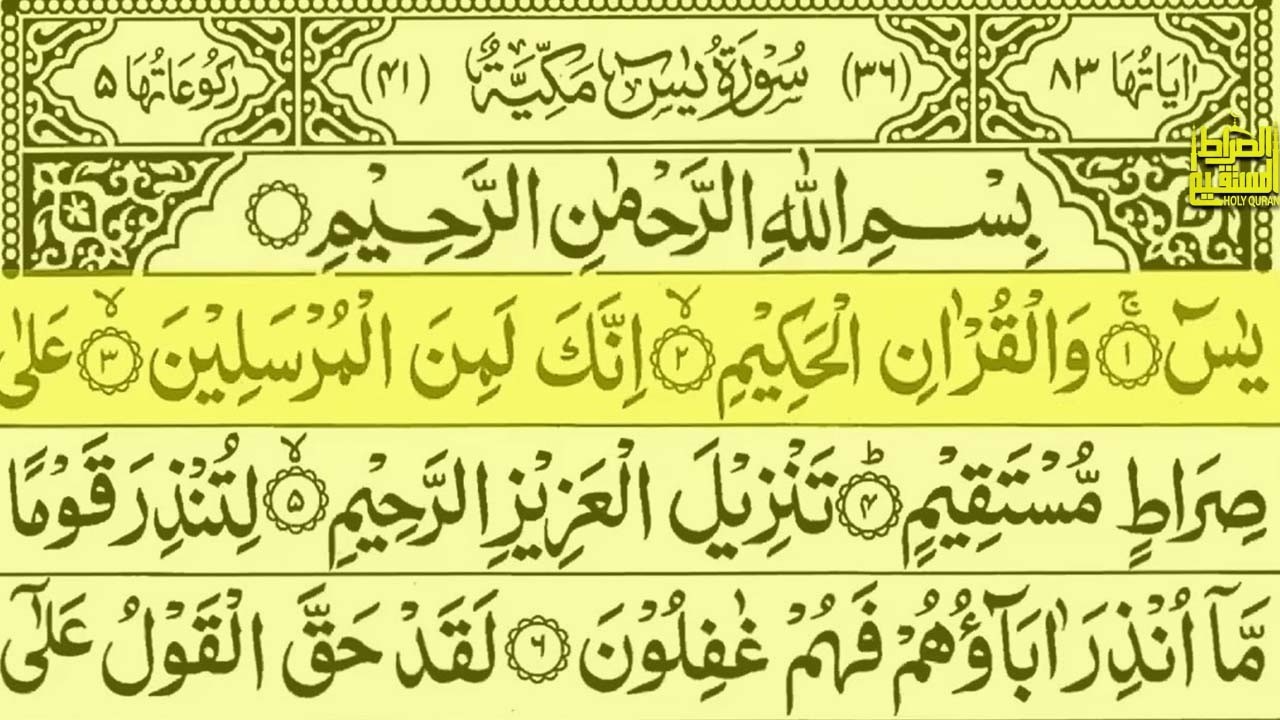 اٰيَاتُهَا ٨٣ (٣٦) سُوْرَةُ يٰسٓ مَكِّيَّةٌ (٤١) رُكُوْعَاتُهَا ٥
الصراط
المستقيم
HOLY QURAN
بِسْمِ اللّٰهِ الرَّحْمٰنِ الرَّحِيْمِ
يٰسٓ ۚ ١ وَالْقُرْاٰنِ الْحَكِيْمِ ۙ ٢ اِنَّكَ لَمِنَ الْمُرْسَلِيْنَ ۙ ٣ عَلٰى
صِرَاطٍ مُّسْتَقِيْمٍ ؕ ۴ تَنْزِيْلَ الْعَزِيْزِ الرَّحِيْمِ ۙ ۵ لِتُنْذِرَ قَوْمًا
مَّآ اُنْذِرَ اٰبَآؤُهُمْ فَهُمْ غٰفِلُوْنَ ٦ لَقَدْ حَقَّ الْقَوْلُ عَلٰٓى